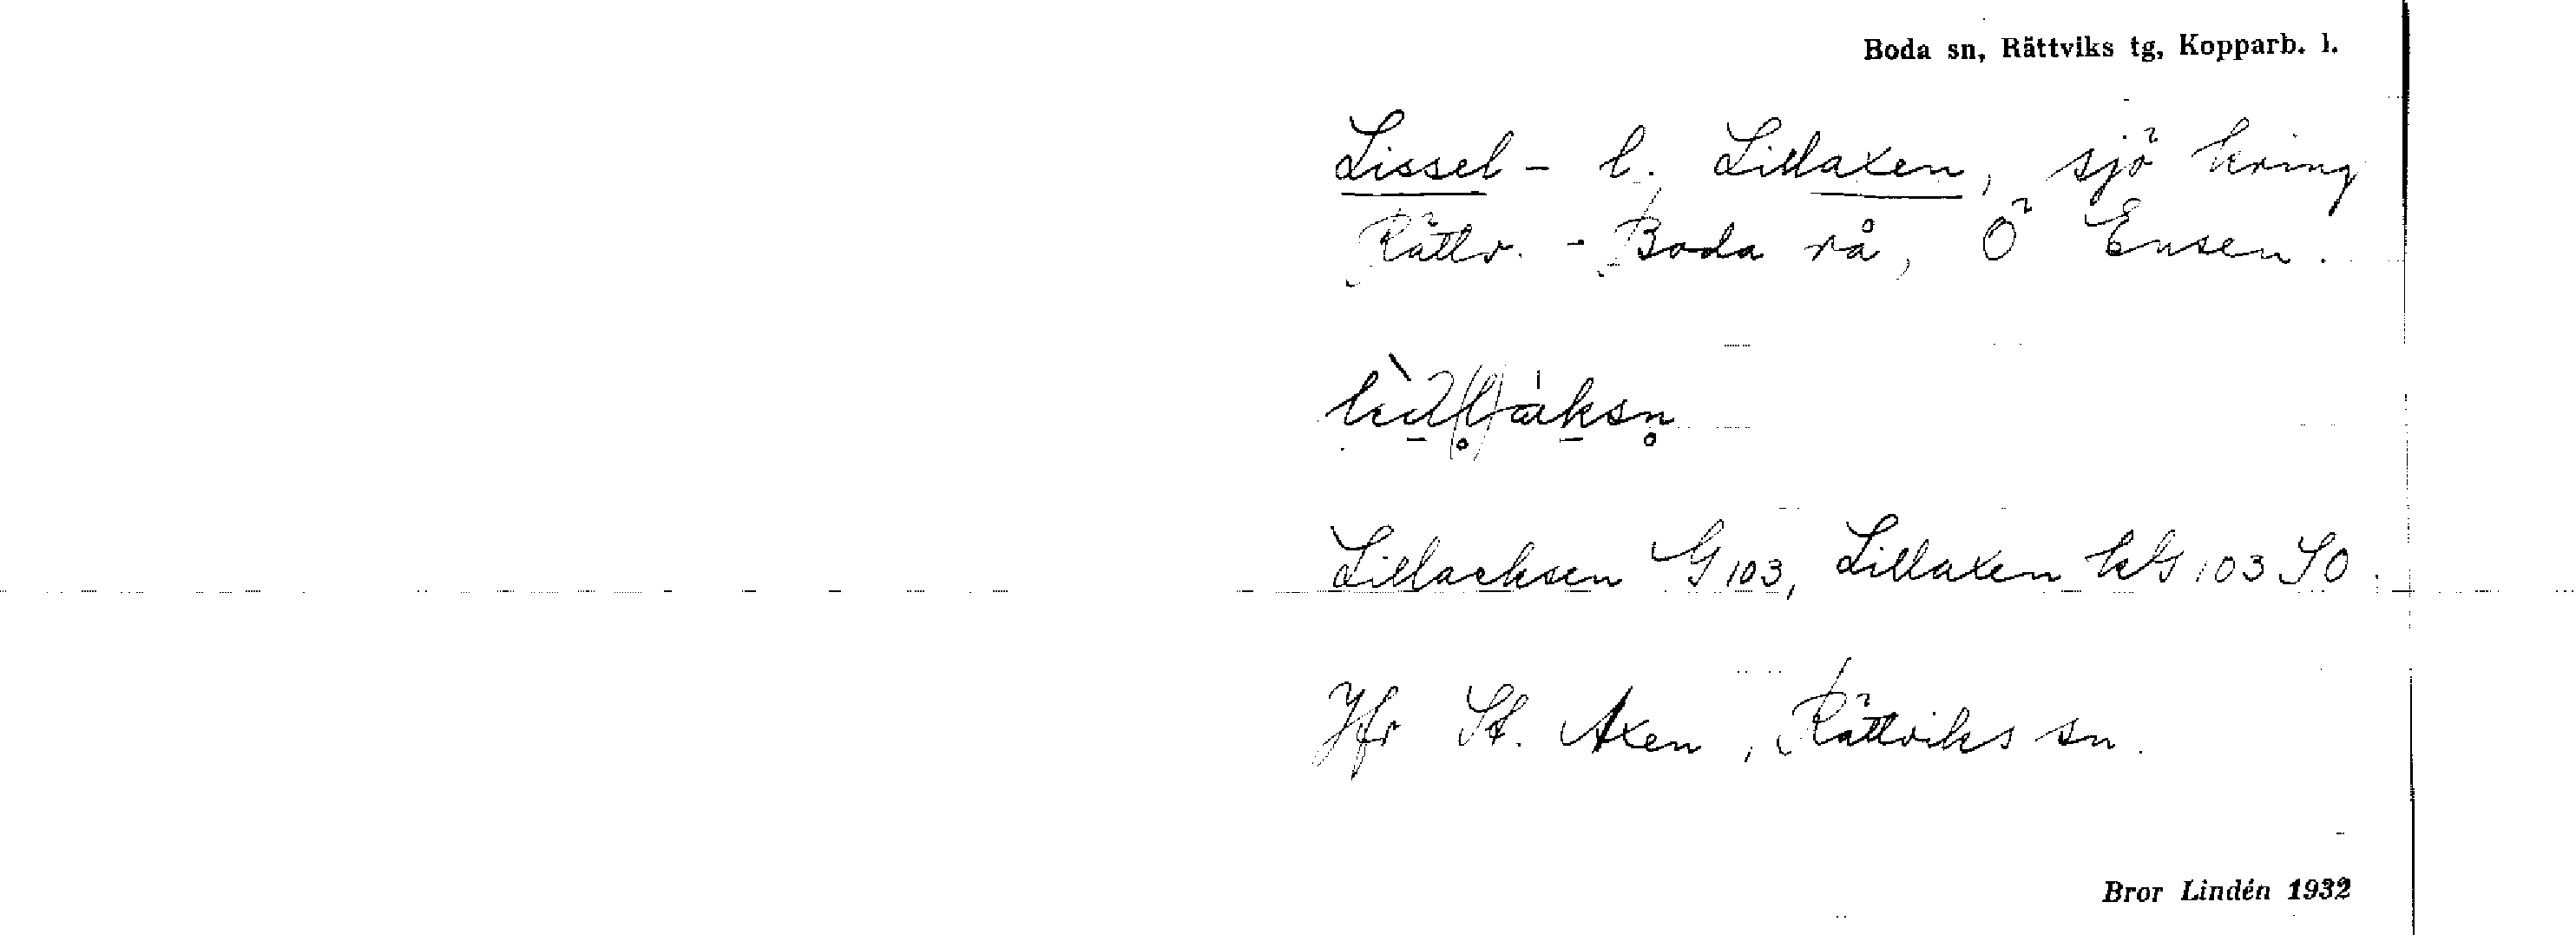 Boda sn, Rättviks tg, Kopparb. l.
Lissel- l. Lillaxen, sjö kring
Rättv.-Boda rå, Ö Ensen.
Lillacksen G 103, Lillaxen kG 103 SO.
Jfr St. Axen, Rättviks sn.
Bror Lindén 1932